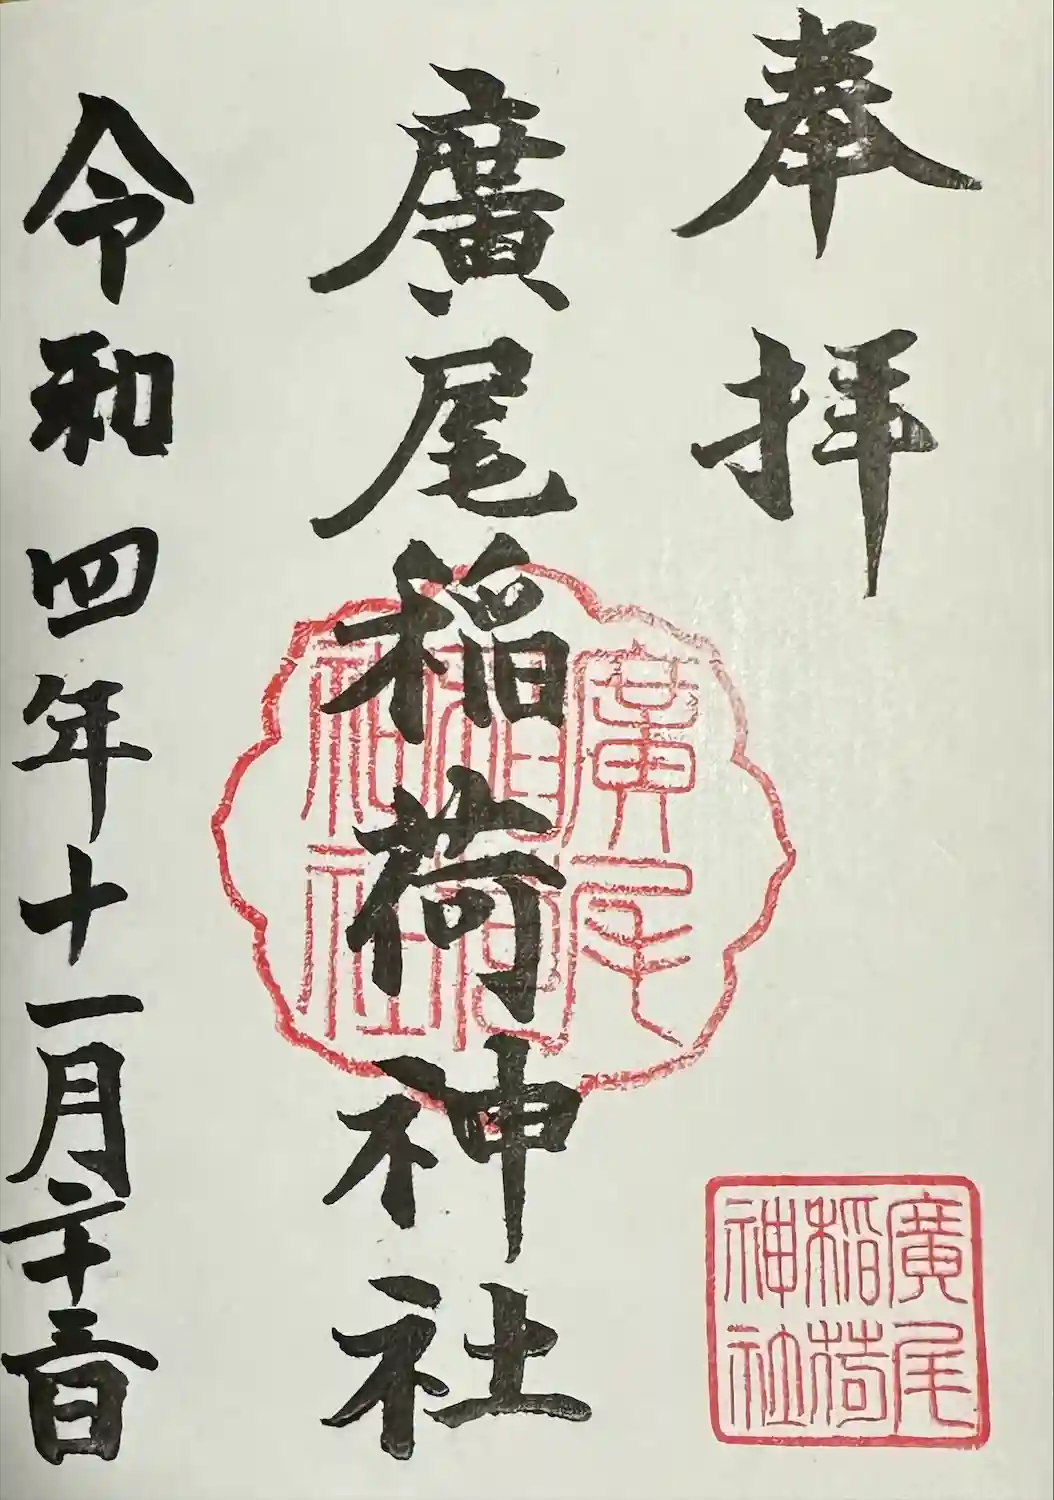 奉拝
廣尾稲荷神社
廣尾稲荷神社
令和四年十一月二十三日
廣尾
稲荷
神社